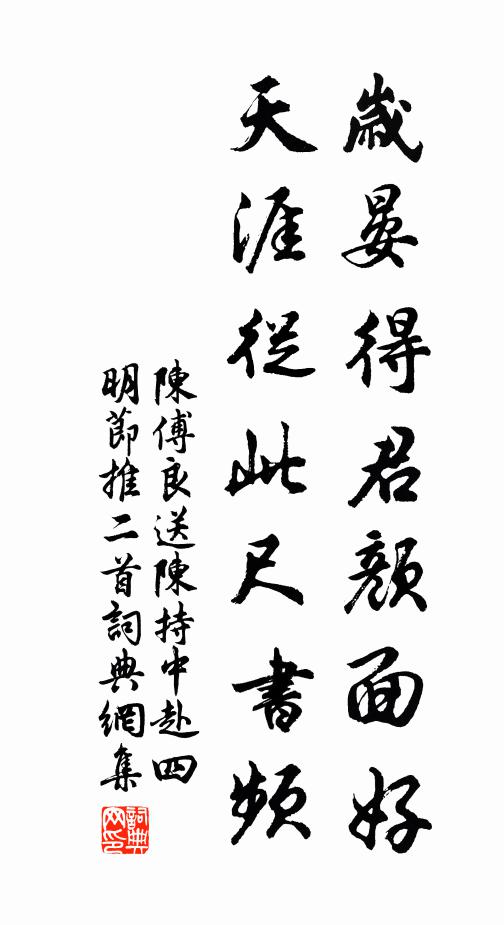 歲晏得君顏面好
天涯從此尺書頻
陳傅良送陳持中赴四
明節推二首詞典網集
詞典
网印